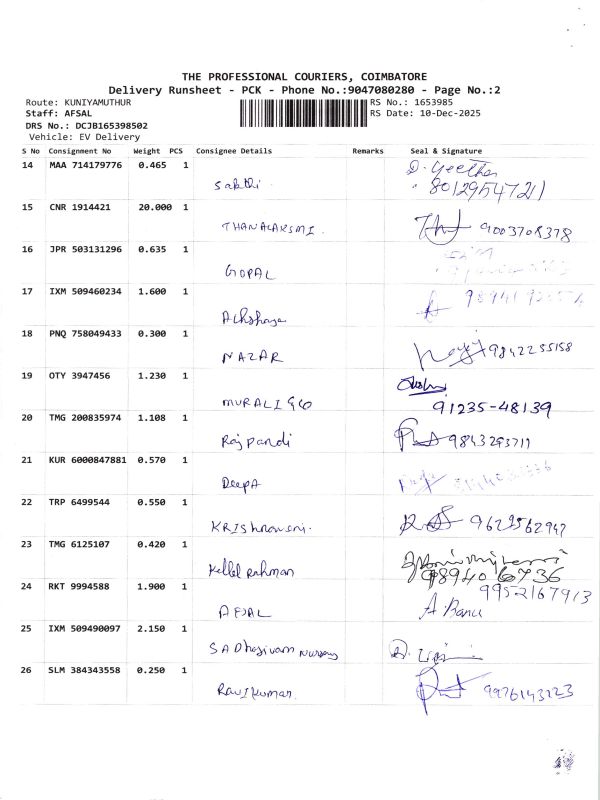 THE PROFESSIONAL COURIERS, COIMBATORE
Delivery Runsheet - PCK - Phone No.:9047080280 - Page No.:2
Route: KUNIYAMUTHUR RS No.: 1653985
Staff: AFSAL RS Date: 10-Dec-2025
DRS No.: DCJB165398502
Vehicle: EV Delivery
S No Consignment No Weight PCS Consignee Details Remarks Seal & Signature
14 MAA 714179776 0.465 1 D. Geetha
Sakthi 8012954721
15 CNR 1914421 20.000 1
THANALAKSMI. 9003708378
16 JPR 503131296 0.635 1
GOPAL
17 IXM 509460234 1.600 1
Akshaya
18 PNQ 758049433 0.300 1
NAZAR 9842255158
19 OTY 3947456 1.230 1
MURALI 91235-48139
20 TMG 200835974 1.108 1
Raj pandi 9843293711
21 KUR 6000847881 0.570 1
DeepA
22 TRP 6499544 0.550 1
KRIshnaveni. 9629562947
23 TMG 6125107 0.420 1
Rahman
24 RKT 9994588 1.900 1 9952167913
AFSAL A. Banu
25 IXM 509490097 2.150 1
SADhasivam
26 SLM 384343558 0.250 1
RavIkumar.